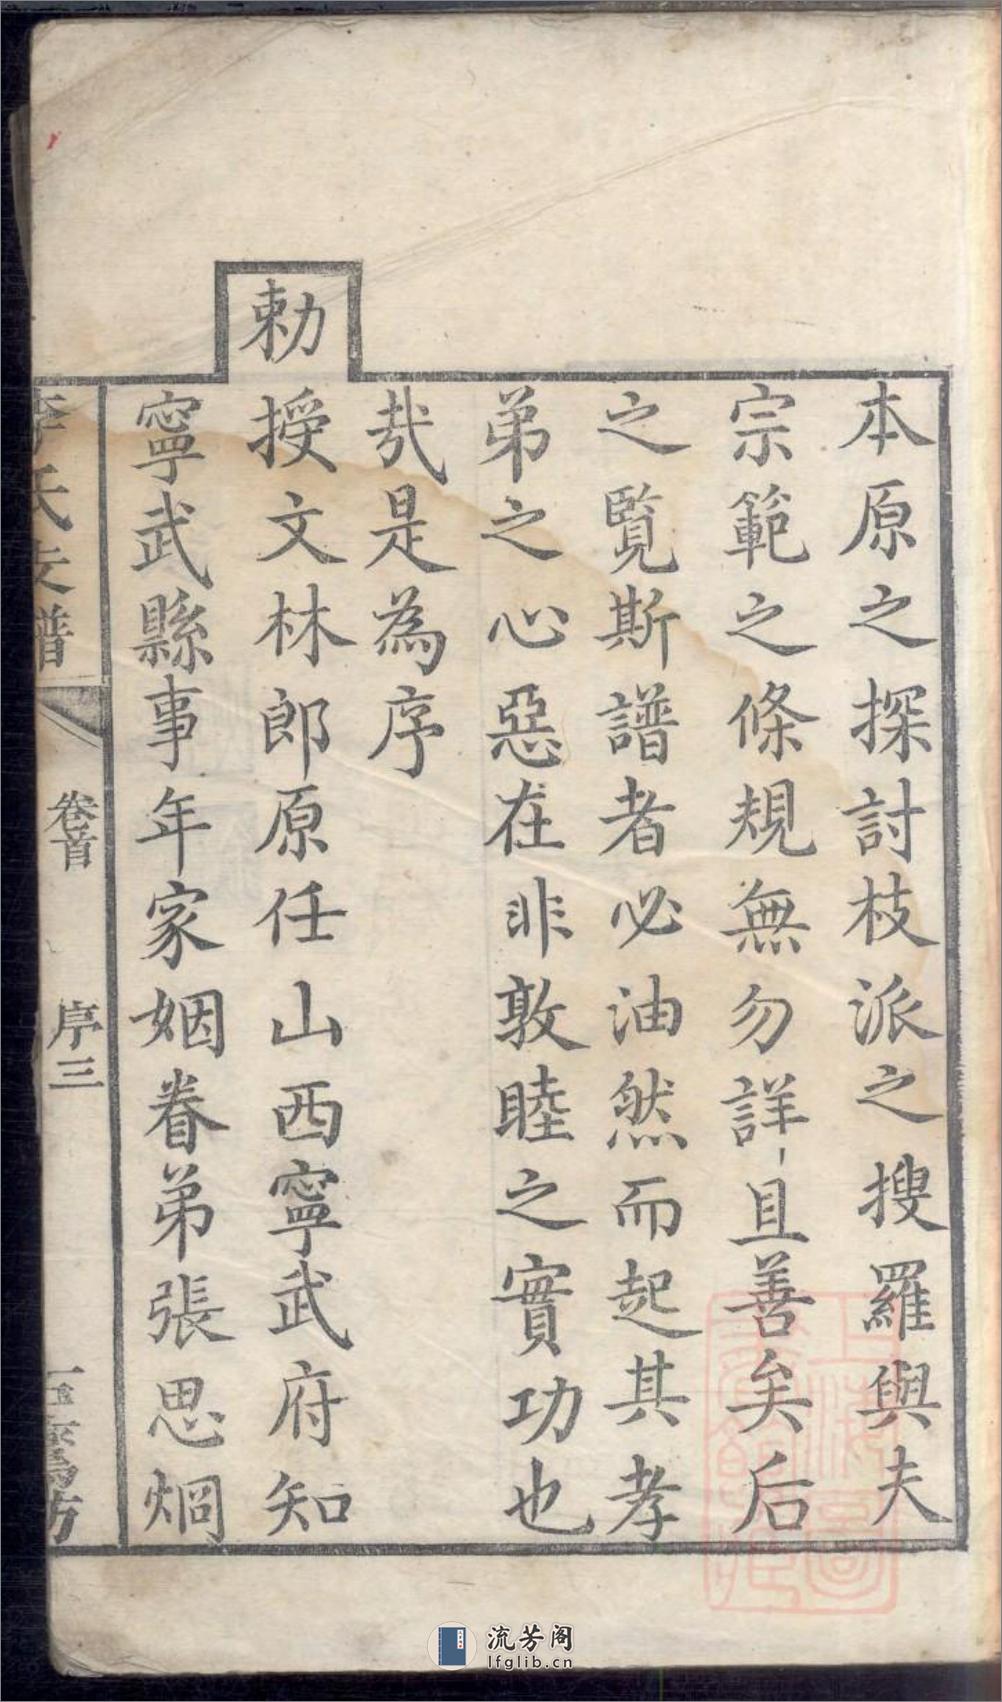 本原之探討枝派之搜羅與夫
宗範之條規無勿詳且善矣后
之覽斯譜者必油然而起其孝
弟之心惡在非敦睦之實功也
哉是為序
勅授文林郎原任山西寧武府知
寧武縣事年家姻眷弟張思烱
李氏支譜
卷首
序三
上海圖書館藏
流芳阁
lfglib.cn